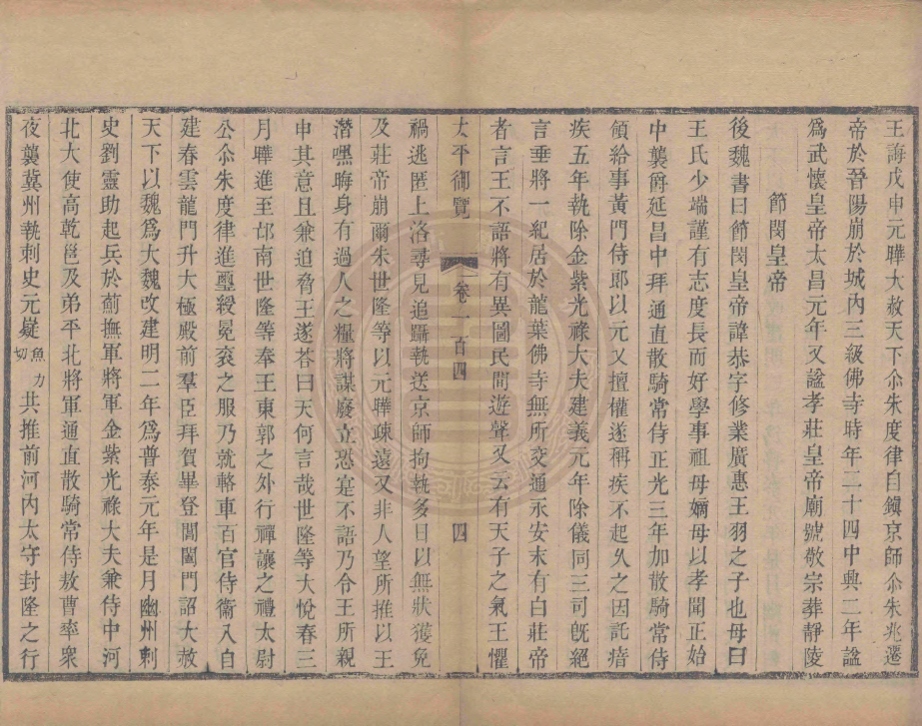 王誨戊申元曄大赦天下尒朱度律自鎮京師尒朱兆遷
帝於晉陽崩於城內三級佛寺時年二十四中興二年謚
爲武懷皇帝太昌元年又謚孝莊皇帝廟號敬宗葬靜陵
節閔皇帝
後魏書曰節閔皇帝諱恭字修業廣惠王羽之子也母曰
王氏少端謹有志度長而好學事祖母嫡母以孝聞正始
中襲爵延昌中拜通直散騎常侍正光三年加散騎常侍
領給事黃門侍郎以元乂擅權遂稱疾不起久之因託瘖
疾五年執除金紫光祿大夫建義元年除儀同三司旣絕
言垂將一紀居於龍葉佛寺無所交通永安末有白莊帝
者言王不語將有異圖民間遊聲又云有天子之氣王懼
太平御覽 卷一百四 四
禍逃匿上洛尋見追躡執送京師拘執多日以無狀獲免
及莊帝崩爾朱世隆等以元曄疎遠又非人望所推以王
潛嘿晦身有過人之量將謀廢立恐寔不語乃令王所親
申其意且兼迫脅王遂荅曰天何言哉世隆等大悅春三
月曄進至邙南世隆等奉王東郭之外行禪讓之禮太尉
公尒朱度律進璽綬冕袞之服乃就輅車百官侍衞入自
建春雲龍門升大極殿前羣臣拜賀畢登閶闔門詔大赦
天下以魏爲大魏改建明二年爲普泰元年是月幽州刺
史劉靈助起兵於薊撫軍將軍金紫光祿大夫兼侍中河
北大使高乾邕及弟平北將軍通直散騎常侍敖曹率衆
夜襲冀州執刺史元嶷魚力切共推前河內太守封隆之行